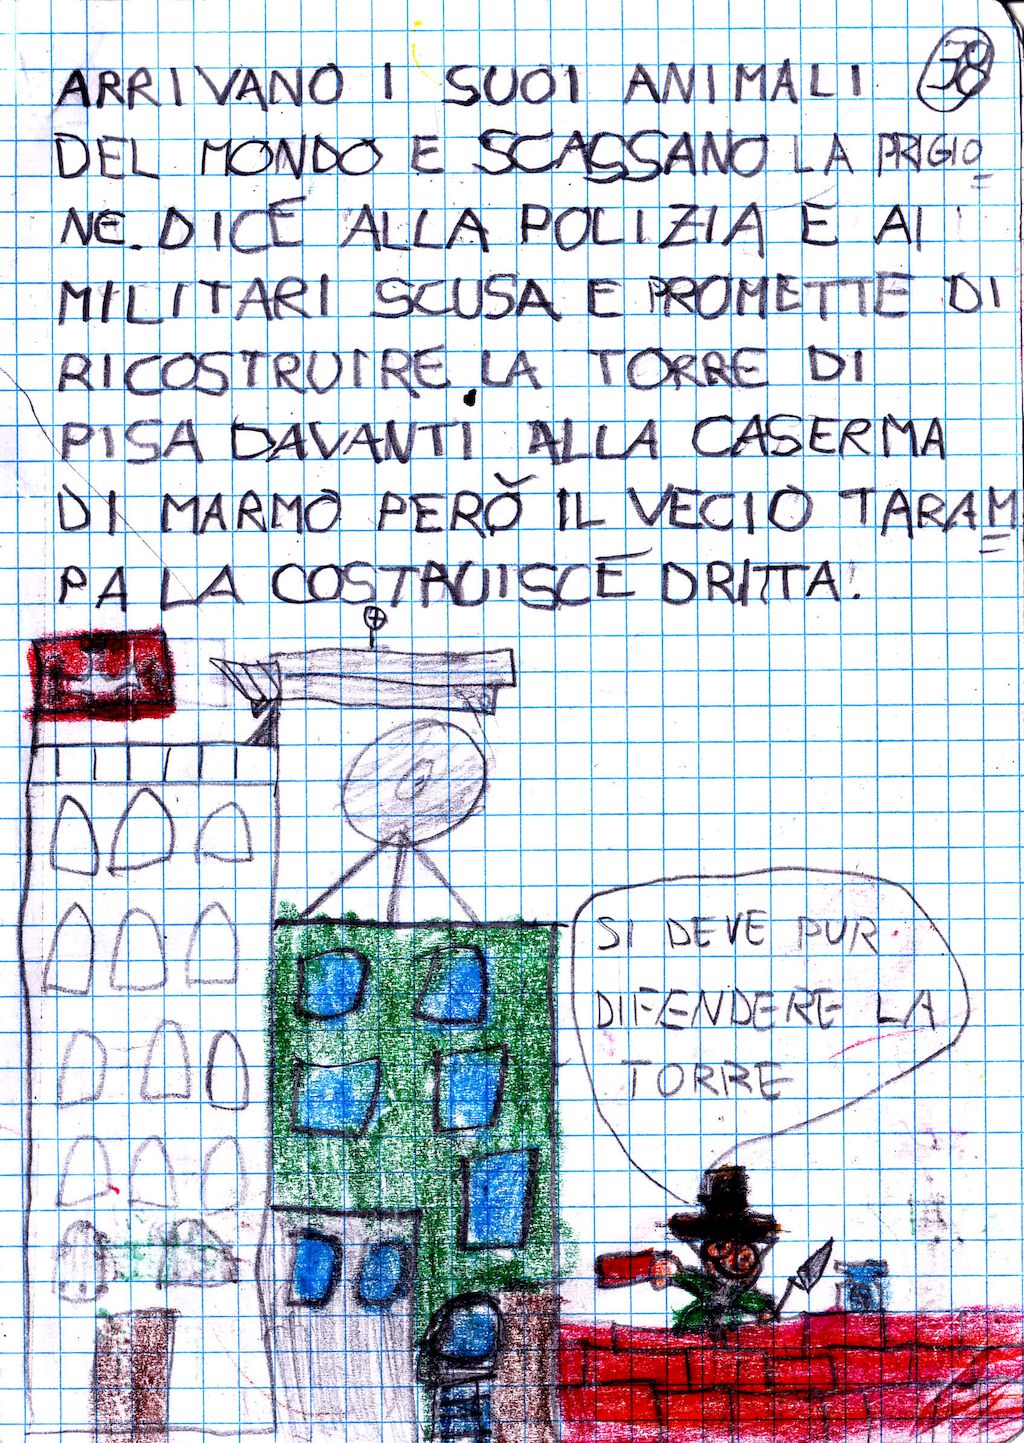 38
ARRIVANO I SUOI ANIMALI
DEL MONDO E SCASSANO LA PRIGIO
NE. DICE ALLA POLIZIA E AI
MILITARI SCUSA E PROMETTE DI
RICOSTRUIRE LA TORRE DI
PISA DAVANTI ALLA CASERMA
DI MARMO PERÒ IL VECIO TARAM
PA LA COSTRUISCE DRITTA.
SI DEVE PUR
DIFENDERE LA
TORRE